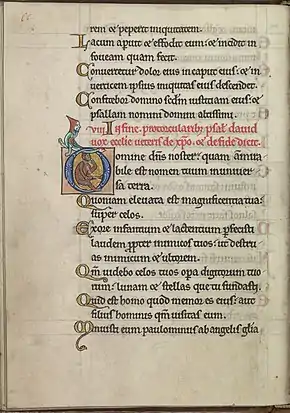 rem et peperit iniquitatem.
Lacum aperuit et effodit eum: et incidit in
foueam quam fecit.
Conuertetur dolor eius in caput eius: et in
uerticem ipsius iniquitas eius descendet.
Confitebor domino sedm iusticiam eius: et
psallam nomini domini altissimi.
viii In fine pro torcularib; psal' dauid
uox ecclie de xpo. et de fide dicit.
Domine dns noster: quam admira
bile est nomen tuum in uniuer
sa terra.
Quoniam eleuata est magnificentia tua
super celos.
Ex ore infantium et lactentium perfecisti
laudem propter inimicos tuos: ut destru
as inimicum et ultorem.
Qm uidebo celos tuos opa digitorum tuo
rum: lunam et stellas que tu fundasti.
Quid est homo quod memor es eius: aut
filius hominis qm uisitas eum.
Minuisti eum paulominus ab angelis glia